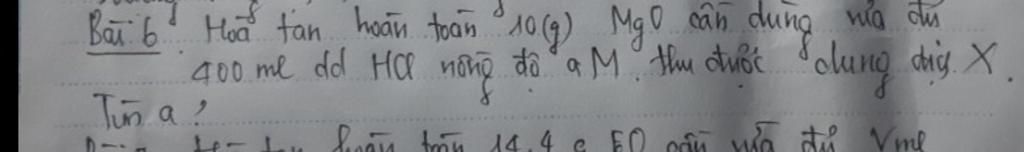 Bài 6. Hoà tan hoàn toàn 10(g) MgO cần dùng vừa đủ
400 ml dd HCl nồng độ a M. thu được dung dịg X.
Tìm a?
hoàn toàn 14,4 g FO cần vừa đủ Vml